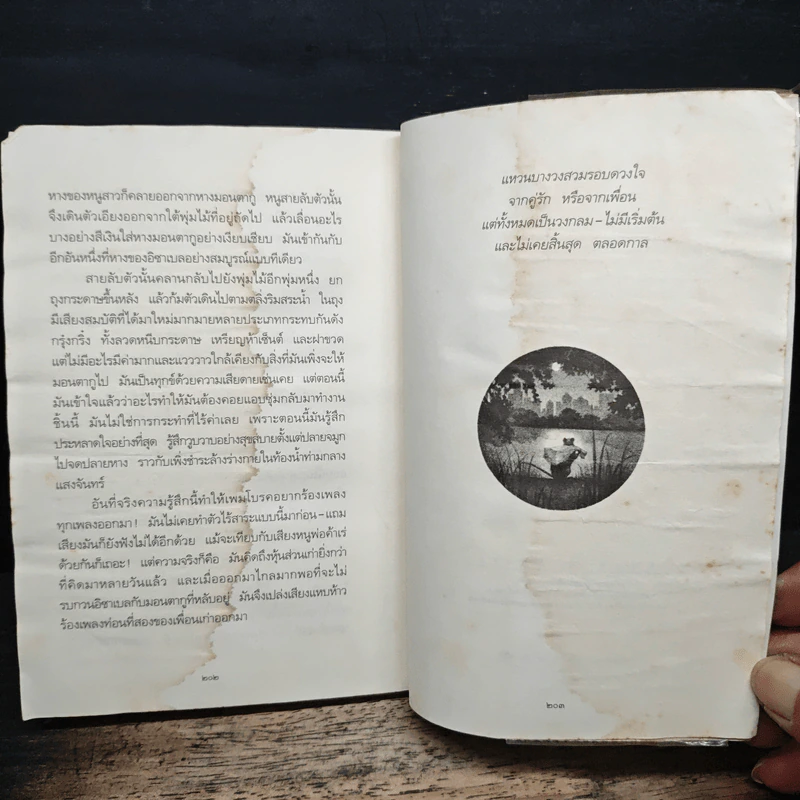 หางของหนูสาวก็คลายออกจากหางมอนตากู หนูสายลับตัวนั้น
จึงเดินตัวเอียงออกจากใต้พุ่มไม้ที่อยู่ถัดไป แล้วเลื่อนอะไร
บางอย่างสีเงินใส่หางมอนตากูอย่างเงียบเชียบ มันเข้ากันกับ
อีกอันหนึ่งที่หางของอิซาเบลอย่างสมบูรณ์แบบทีเดียว
สายลับตัวนั้นคลานกลับไปยังพุ่มไม้อีกพุ่มหนึ่ง ยก
ถุงกระดาษขึ้นหลัง แล้วก้มตัวเดินไปตามตลิ่งริมสระน้ำ ในถุง
มีเสียงสมบัติที่ได้มาใหม่มากมายหลายประเภทกระทบกันดัง
กรุ๋งกริ๋ง ทั้งลวดหนีบกระดาษ เหรียญห้าเซ็นต์ และฝาขวด
แต่ไม่มีอะไรมีค่ามากและแวววาวใกล้เคียงกับสิ่งที่มันเพิ่งจะให้
มอนตากูไป มันเป็นทุกข์ด้วยความเสียดายเช่นเคย แต่ตอนนี้
มันเข้าใจแล้วว่าอะไรทำให้มันต้องคอยแอบซุ่มกลับมาทำงาน
ชิ้นนี้ มันไม่ใช่การกระทำที่ไร้ค่าเลย เพราะตอนนี้มันรู้สึก
ประหลาดใจอย่างที่สุด รู้สึกวูบวาบอย่างสุขสบายตั้งแต่ปลายจมูก
ไปจดปลายหาง ราวกับเพิ่งชำระล้างร่างกายในท้องน้ำท่ามกลาง
แสงจันทร์
อันที่จริงความรู้สึกนี้ทำให้เพมโบรคอยากร้องเพลง
ทุกเพลงออกมา! มันไม่เคยทำตัวไร้สาระแบบนี้มาก่อน–แถม
เสียงมันก็ยังฟังไม่ได้อีกด้วย แม้จะเทียบกับเสียงหนูพ่อค้าเร่
ด้วยกันก็เถอะ! แต่ความจริงก็คือ มันคิดถึงหุ้นส่วนเก่ายิ่งกว่า
ที่คิดมาหลายวันแล้ว และเมื่อออกมาไกลมากพอที่จะไม่
รบกวนอิซาเบลกับมอนตากูที่หลับอยู่ มันจึงเปล่งเสียงแหบห้าว
ร้องเพลงท่อนที่สองของเพื่อนเก่าออกมา
๒๐๒
แหวนบางวงสวมรอบดวงใจ
จากคู่รัก หรือจากเพื่อน
แต่ทั้งหมดเป็นวงกลม–ไม่มีเริ่มต้น
และไม่เคยสิ้นสุด ตลอดกาล
๒๐๓